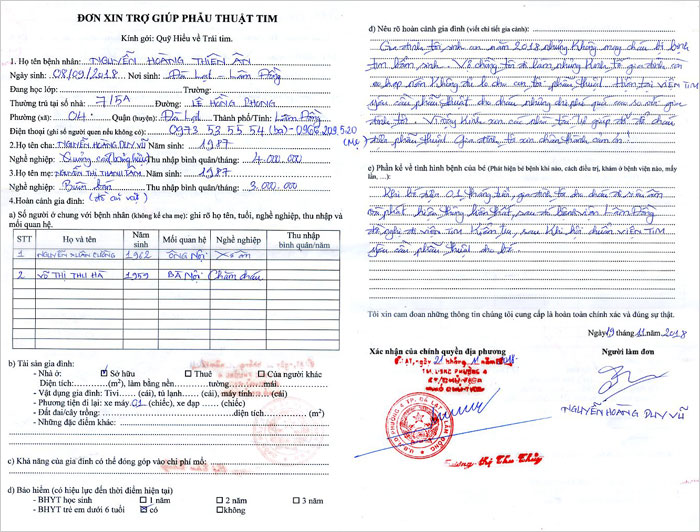 ĐƠN XIN TRỢ GIÚP PHẪU THUẬT TIM
Kính gởi: Quỹ Hiểu về Trái tim.
1. Họ tên bệnh nhân: NGUYỄN HOÀNG THIÊN ÂN
Ngày sinh: 08/09/2018 Nơi sinh: Đà Lạt – Lâm Đồng
Đang học lớp: Trường:
Thường trú tại số nhà: 7/5A Đường: LÊ HỒNG PHONG
Phường (xã): 04. Quận (huyện): Đà Lạt Thành phố/Tỉnh: Lâm Đồng
Điện thoại (ghi số người quen nếu không có): 0973 53 55 54 (ba) - 0966 209 520 (Mẹ)
2.Họ tên cha: NGUYỄN HOÀNG DUY VŨ Năm sinh: 1987
Nghề nghiệp: Thu nhập bình quân/tháng: 4.000.000
3.Họ tên mẹ: NGUYỄN THỊ THANH TÂM. Năm sinh: 1987
Nghề nghiệp: Buôn bán Thu nhập bình quân/tháng: 3.000.000
4.Hoàn cảnh gia đình:
a) Số người ở chung với bệnh nhân (không kể cha mẹ): ghi rõ họ tên, tuổi, nghề nghiệp, thu nhập và
mối quan hệ.
STT Họ và tên Năm sinh Mối quan hệ Nghề nghiệp Thu nhập bình quân/năm
1 NGUYỄN XUÂN CƯỜNG 1962 ÔNG NỘI Xe ôm
2 VÕ THỊ THU HÀ 1959 BÀ NỘI Chăm cháu
b) Tài sản gia đình:
- Nhà ở: Sở hữu Thuê Của người khác
Diện tích:(m2), làm bằng nền tường mái
- Vật dụng gia đình: Tivi (cái), tủ lạnh (cái), máy tính (cái)
- Phương tiện đi lại: xe máy 01 (chiếc), xe đạp (chiếc)
- Đất đai/cây trồng: diện tích (m2)
- Những đặc điểm khác:
c) Khả năng của gia đình có thể đóng góp vào chi phí mổ:
d) Bảo hiểm (có hiệu lực đến thời điểm hiện tại)
- BHYT học sinh 1 năm 2 năm 3 năm
- BHYT trẻ em dưới 6 tuổi có không
đ) Nêu rõ hoàn cảnh gia đình (viết chi tiết gia cảnh):
Gia đình tôi sinh cu năm 2018 nhưng không may cháu bị bệnh
tim bẩm sinh. Vợ chồng tôi đi làm nhưng kinh tế gia đình còn
eo hẹp nên không đủ lo cho con tôi phẫu thuật. Hiện tại VIỆN TIM
yêu cầu phẫu thuật cho cháu nhưng chi phí quá cao so với gia
đình tôi. Vì vậy kính xin các nhà tài trợ giúp đỡ để cháu
được phẫu thuật. Gia đình tôi xin chân thành cảm ơn!
e) Phần kể về tình hình bệnh của bé (Phát hiện bé bệnh khi nào, cách điều trị, khám ở bệnh viện nào, mấy
lần, ...):
Khi bé được 01 tháng tuổi, gia đình tôi cho cháu đi viện
và phát hiện thông liên thất, sau đó bệnh viện Lâm Đồng
đề nghị đi viện tim kiểm tra, sau khi hội chuẩn VIỆN TIM
yêu cầu phẫu thuật cho bé.
Tôi xin cam đoan những thông tin chúng tôi cung cấp là hoàn toàn chính xác và đúng sự thật.
Ngày 19 tháng 11 năm 2018
Xác nhận của chính quyền địa phương Người làm đơn
ngày 21 tháng 11 năm 2018
NGUYỄN HOÀNG DUY VŨ
Trương Thị Thu Thủy